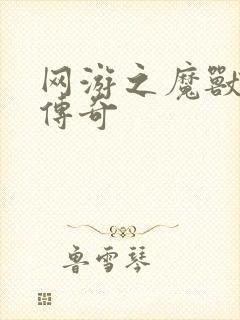 网游之魔獸
傳奇
鲁雪琴